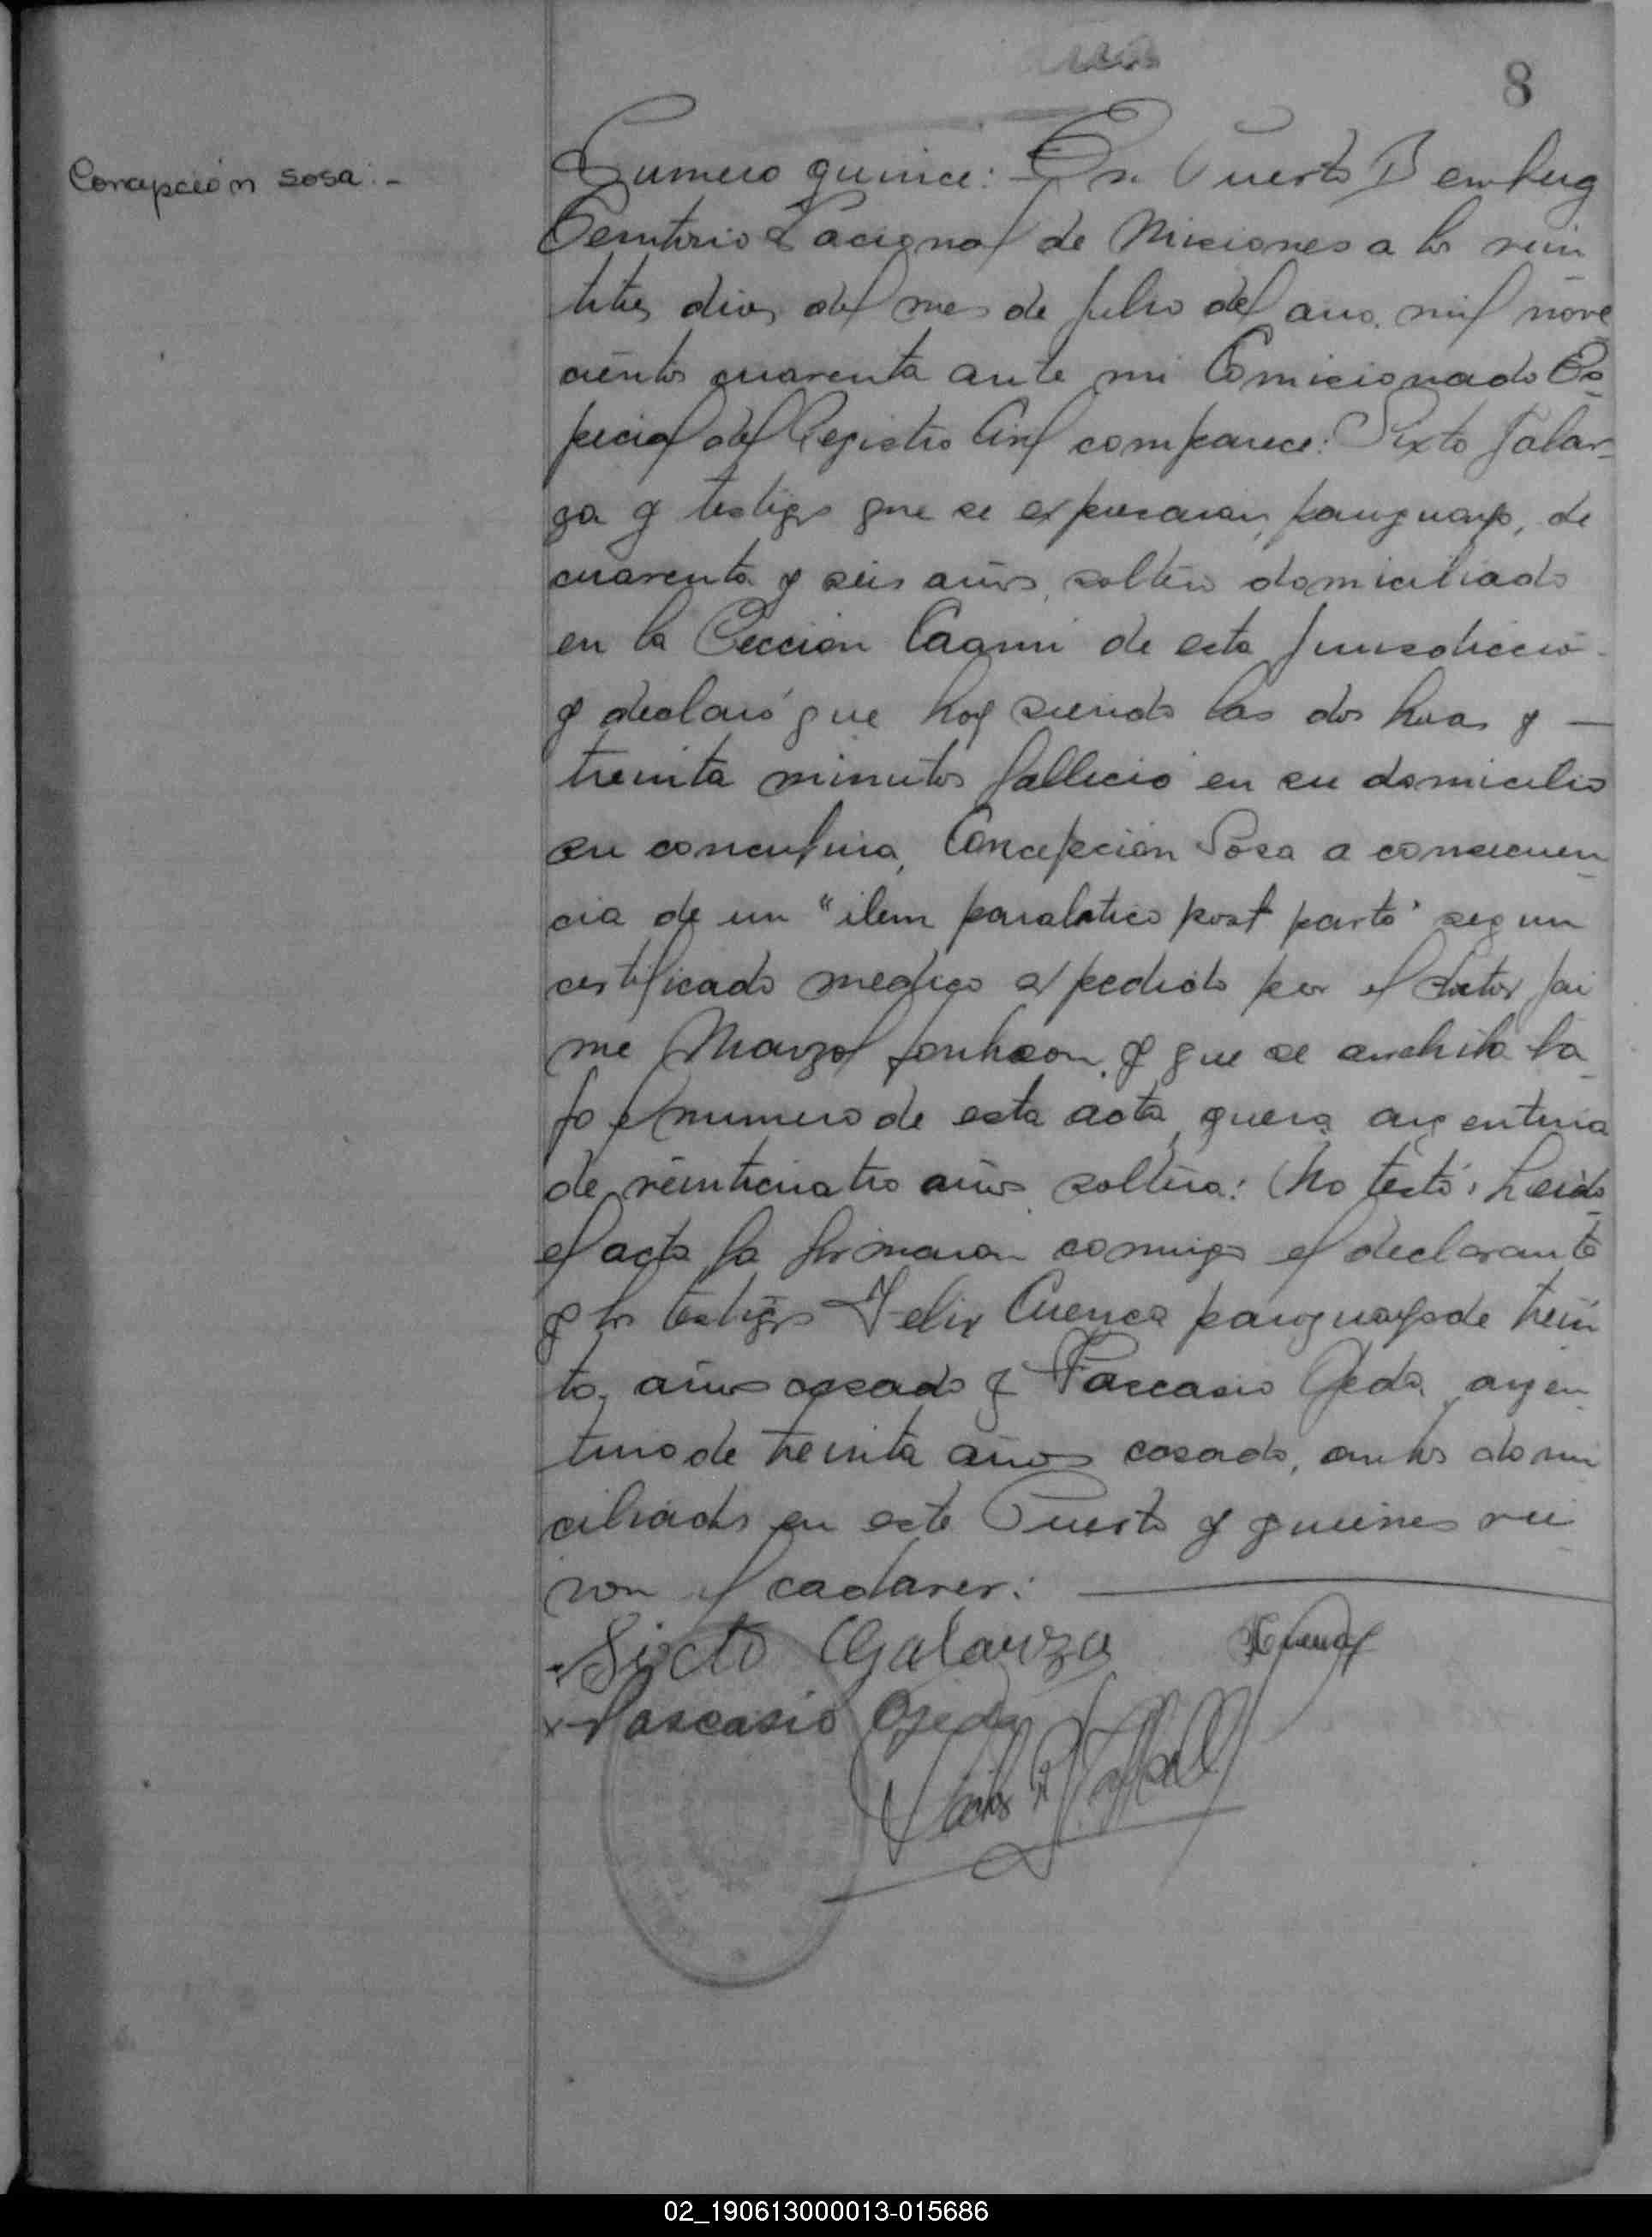 8
Concepción Sosa:-
Numero quince: En Puerto Bemberg
Territorio Nacional de Misiones a los vein
titres dias del mes de Julio del año mil nove
cientos cuarenta ante mi Comisionado Es-
pecial del Registro Civil comparece: Sixto Galar-
za y testigos que se expresaran, paraguayo, de
cuarenta y seis años, soltero domiciliado
en la Seccion de esta Jurisdiccio-
y declaró que hoy siendo las dos horas y —
treinta minutos fallecio en su domicilio
su concubina, Concepcion Sosa a consecuen
cia de un "ilem paralatico post parto" segun
certificado medico expedido por el doctor Jai
me y que se archiba ba-
jo el numero de esta acta, quera argentina
de veinticuatro años soltera: No testó: Leido
el acta la firmaron conmigo el declarante
y los testigos Felix Cuenca paraguayo de trein
ta, años casado y Pascasio Ojeda argen-
tino de treinta años casado, ambos domi
ciliados en este Puerto y quienes vie-
ron el cadaver:
Sixto Galarza
x Pascasio Ojeda
02_190613000013-015686